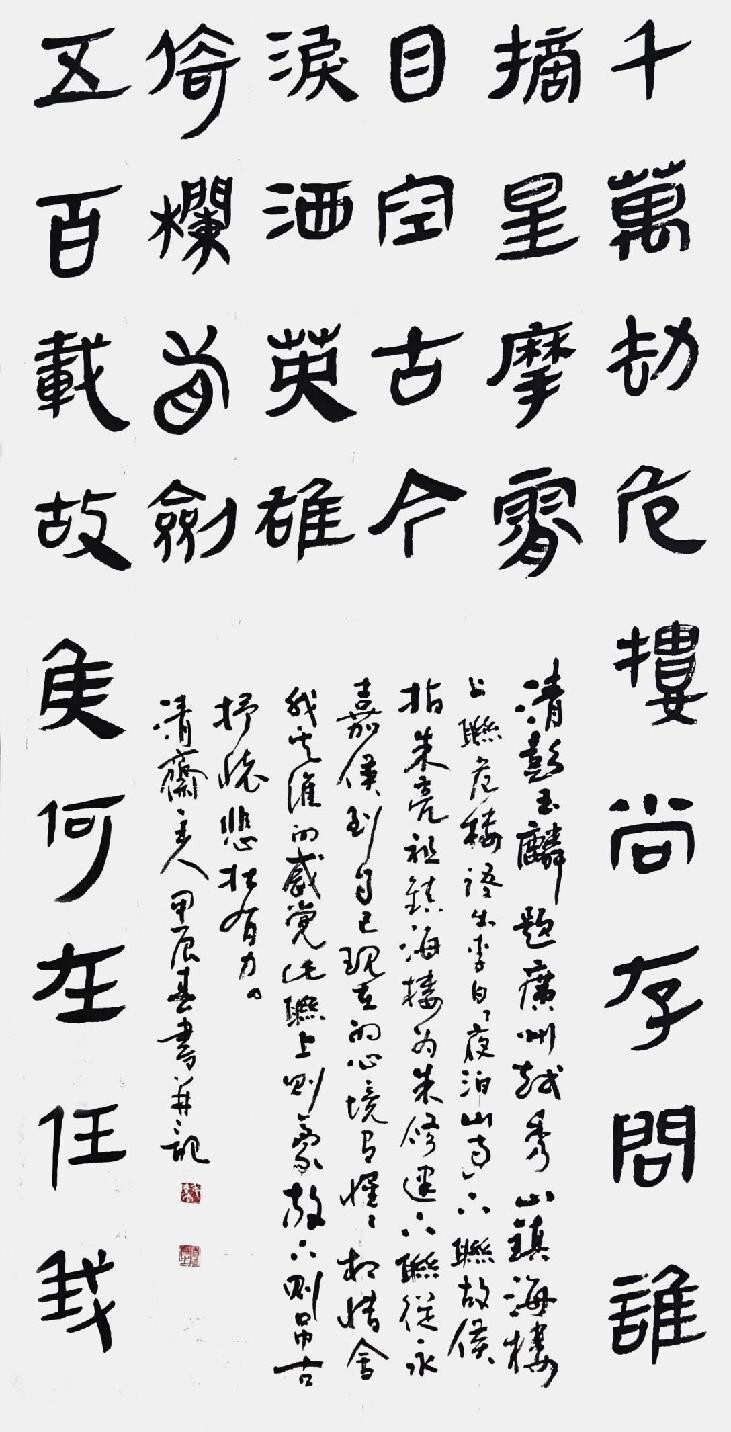 千萬劫危樓尚存問誰
摘星摩霄
目空古今
五百載故侯何在任我
倚欄看劍
淚洒英雄
清彭玉麟題廣州越秀山鎮海樓
上聯危樓語出李白夜泊山寺下聯故侯
指朱亮祖鎮海樓为朱修建下聯從永
嘉侯到自己現在的心境有惺惺相惜舍
我其誰的感覺此聯上則豪放下則吊古
抒懷悲壯有力
清齋主人甲辰春書并記